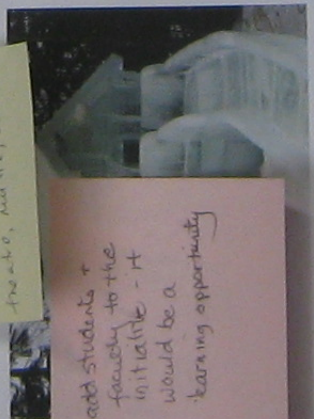 add students +
faculty to the
initiative - it
would be a
learning opportunity